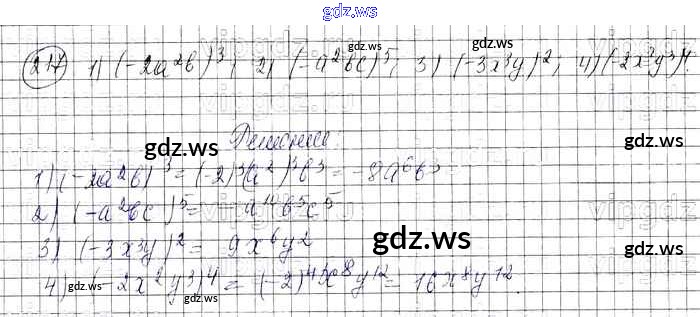 gdz.ws
217 1) (-2a²b)³; 2) (-a²bc)⁵; 3) (-3x³y)²; 4) (-2x²y³)⁴.
gdz.ws
gdz.ws
Решение:
gdz.ws
1) (-2a²b)³ = (-2)³(a²)³b³ = -8a⁶b³
2) (-a²bc)⁵ = b⁵c⁵
gdz.ws
3) (-3x³y)² = 9x⁶y²
gdz.ws
4) (-2x²y³)⁴ = (-2)⁴x⁸y¹² = 16x⁸y¹².
gdz.ws